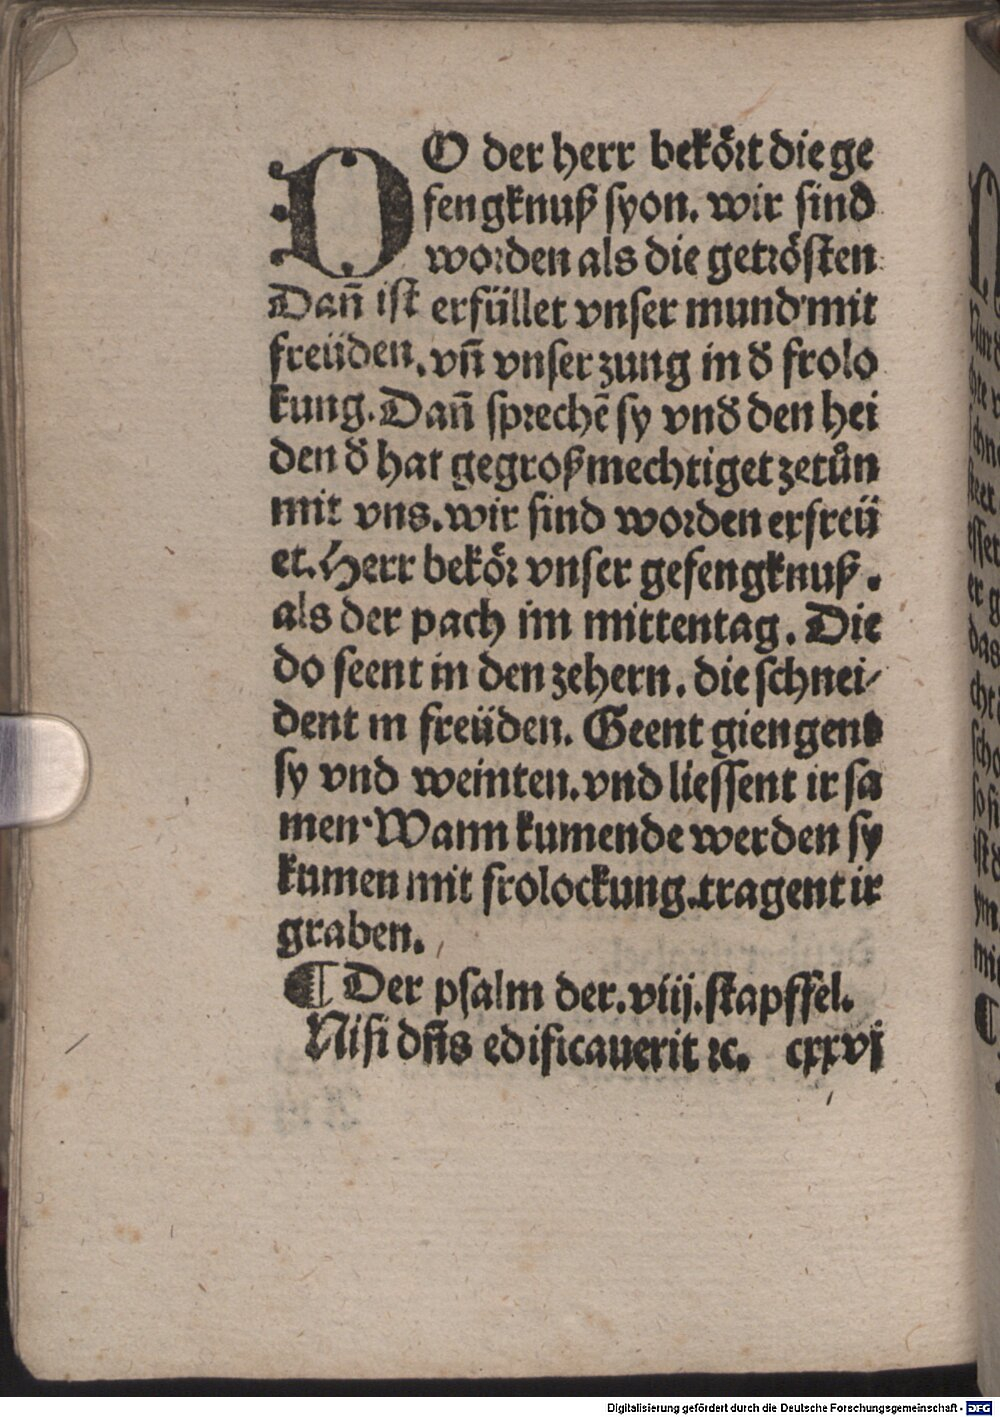 DO der herr bekört die ge
fengknuß syon. wir sind
worden als die getrösten
Dan̄ ist erfüllet vnser mund mit
freüden. vn̄ vnser zung in d̕ frolo
kung. Dan̄ sprechē sy vnd̕ den hei
den d̕ hat gegroßmechtiget zetůn
mit vns. wir sind worden erfreü
et. Herr bekör vnser gefengknuß.
als der pach im mittentag. Die
do seent in den zehern. die schnei⸗
dent in freüden. Geent giengent
sy vnd weinten. vnd liessent ir sa
men. Wann kumende werden sy
kumen mit frolockung. tragent ir
graben.
¶ Der psalm der .viij. stapffel.
Nisi dn̄s edificauerit ⁊c. cxxvj
Digitalisierung gefördert durch die Deutsche Forschungsgemeinschaft - DFG